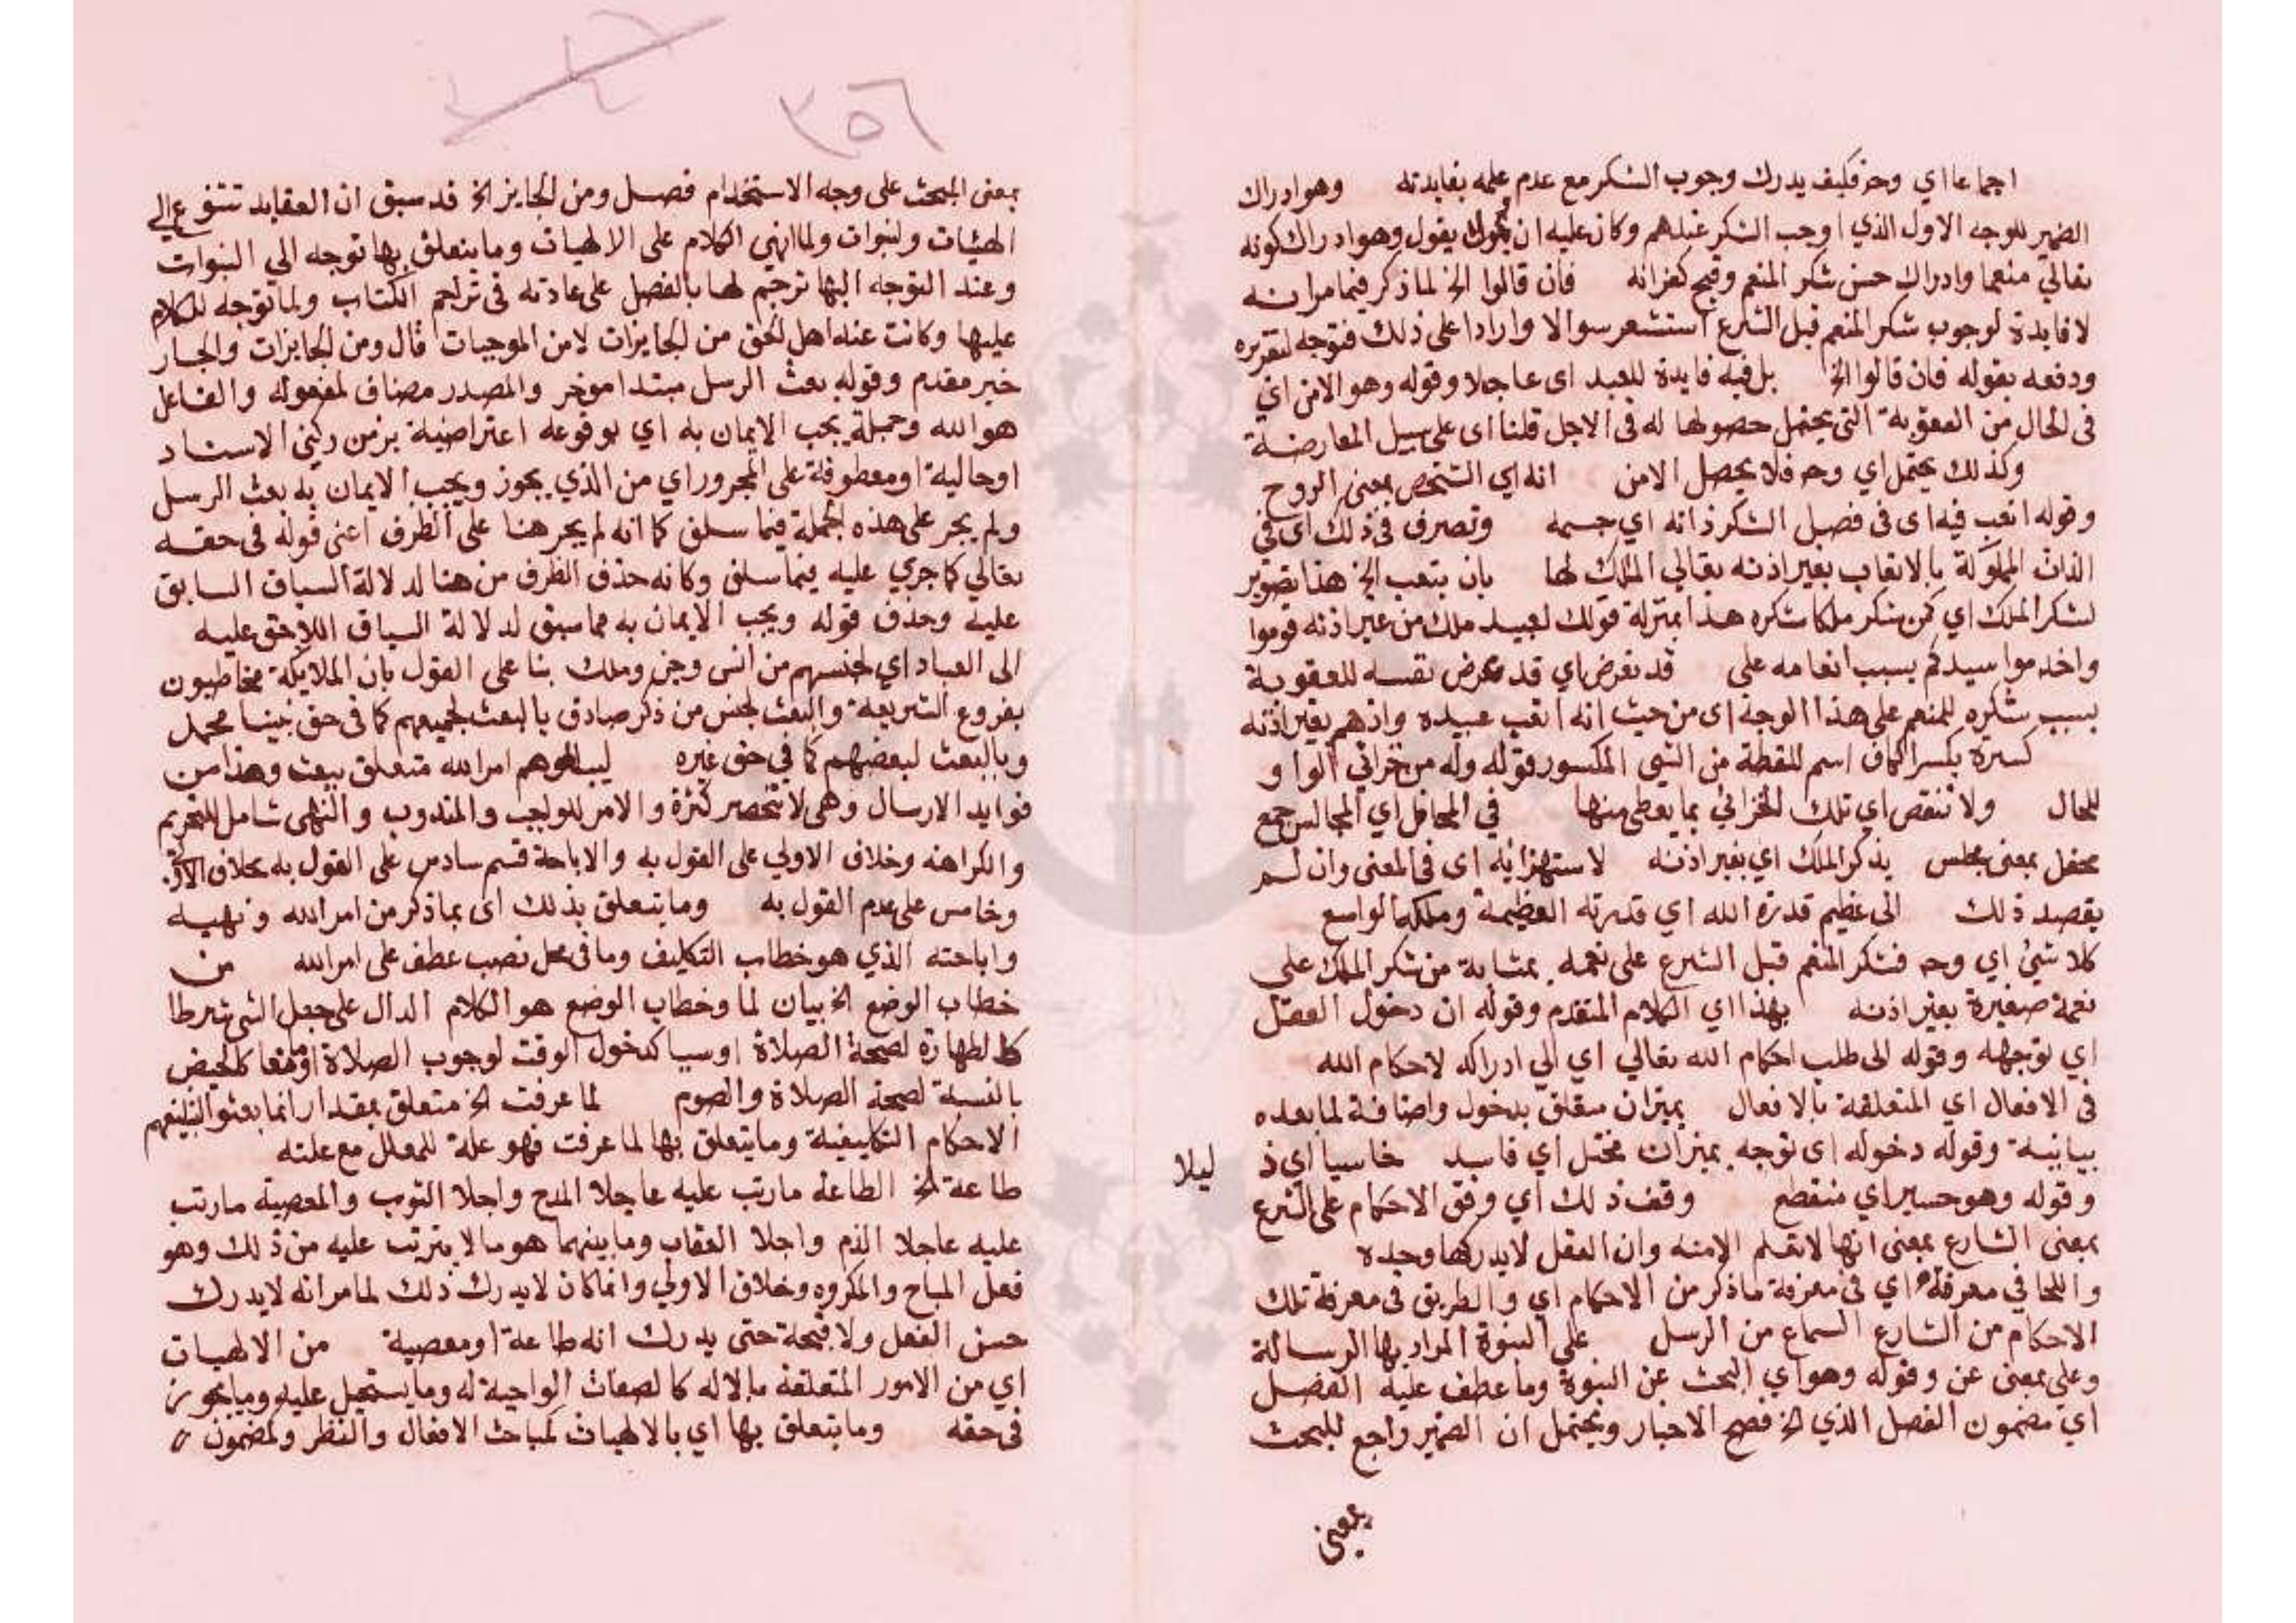 اجماعا اي وحـ فكيف يدرك وجوب الشكر مع عدم علمه بفايدته وهو ادراك
الضمير للوجه الاول الذي اوجب الشكر عندهم وكان عليه ان يقول وهو ادراك كونه
تعالي منعما وادراك حسن شكر المنعم وقبح كفرانه فان قالوا الخ لما ذكر فيما مر انه
لا فايدة لوجوب شكر المنعم قبل الشرع استشعر سوالا واردا على ذلك فتوجه لتقريره
ودفعه بقوله فان قالوا الخ بل فيه فايدة للعبد اى عاجلا وقوله وهو الامن اي
فى الحال من العقوبة التى يحتمل حصولها له فى الاجل قلنا اى على سبيل المعارضة
وكذلك يحتمل اي وحـ فلا يحصل الامن انه اي الشخص بمعنى الروح
وقوله اتعب فيه اى فى فصل الشكر ذاته اي جسمه وتصرف فى ذلك اى فى
الذات المملوكة بالاتعاب بغير اذنه تعالي المالك لها بان يتعب الخ هذا تصوير
لشكر الملك اي كمن شكر ملكا شكره هذا بمنزلة قولك لعبيد ملك من غير اذنه قوموا
واخدموا سيدكم بسبب انعامه على قد تعرض اي قد عرض نفسه للعقوبة
بسبب شكره للمنعم على هذا الوجه اى من حيث انه اتعب عبيده واذهم بغير اذنه
كسرة بكسر الكاف اسم للقطعة من الشي المكسور قوله وله من خزاني الواو
للحال ولا تنقص اي تلك الخزائن بما يعطى منها في المحافل اي المجالس جمع
محفل بمعنى مجلس يذكر الملك اي بغير اذنه لاستهزايه اى فى المعنى وان لم
يقصد ذلك الى عظيم قدرة الله اي قدرته العظيمة وملكه الواسع
كلا شئ اي وحـ فشكر المنعم قبل الشرع على نعمه بمثابة من شكر الملك على
نعمة صغيرة بغير اذنه بهذا اي الكلام المتقدم وقوله ان دخول العقل
اي توجهه وقوله الى طلب احكام الله تعالي اي الي ادراكه لاحكام الله
فى الافعال اي المتعلقة بالافعال بميزان متعلق بدخول واضافة لما بعده
بيانية وقوله دخوله اى توجه بميزان مختل اي فاسد خاسيا اي ذ
ليلا
وقوله وهو حسير اي منقطع وقف ذلك اي وفق الاحكام على الشرع
بمعنى الشارع بمعنى انها لا تعلم الا منه وان العقل لا يدركها وحده
واللجا في معرفة اي فى معرفة ما ذكر من الاحكام اي والطريق فى معرفة تلك
الاحكام من الشارع السماع من الرسل على النبوة المراد بها الرسالة
وعلى بمعنى عن وقوله وهو اي البحث عن النبوة وما عطف عليه الفصل
اي مضمون الفصل الذي الخ فصح الاخبار ويحتمل ان الضمير راجع للبحث
بمعنى
٣٥٦
بمعنى المبحث على وجه الاستخدام فصل ومن الجايز الخ قد سبق ان العقايد تتنوع الي
الهيات ونبوات ولما انهي الكلام على الالهيات وما يتعلق بها توجه الي النبوات
وعند التوجه اليها ترجم لها بالفصل على عادته فى تراجم الكتاب ولما توجه للكلام
عليها وكانت عند اهل الحق من الجايزات لا من الموجبات قال ومن الجايزات والجار
خبر مقدم وقوله بعث الرسل مبتدا موخر والمصدر مضاف لمفعوله والفاعل
هو الله وجملة يجب الايمان به اي بوقوعه اعتراضية بين ركني الاسناد
او حالية او معطوفة على المجرور اي من الذي يجوز ويجب الايمان به بعث الرسل
ولم يجر على هذه الجملة فيما سلف كما انه لم يجر هنا على الظرف اعنى قوله فى حقه
تعالي كما جري عليه فيما سلف وكانه حذف الظرف من هنا لدلالة السياق السابق
عليه وحذف قوله ويجب الايمان به مما سبق لدلالة السياق اللاحق عليه
الى العباد اي لجنسهم من انس وجن وملك بنا على القول بان الملايكة مخاطبون
بفروع الشريعة والبعث لجنس من ذكر صادق بالبعث لجميعهم كما فى حق نبينا محمد
وبالبعث لبعضهم كما في حق غيره ليبلغوهم امر الله متعلق ببعث وهذا من
فوايد الارسال وهى لا تنحصر كثرة والامر للواجب والمندوب والنهى شامل للتحريم
والكراهة وخلاف الاولي على القول به والاباحة قسم سادس على القول به بخلاف الاول
وخامس على عدم القول به وما يتعلق بذلك اى بما ذكر من امر الله ونهيه
واباحته الذي هو خطاب التكليف وما فى محل نصب عطف على امر الله من
خطاب الوضع الخ بيان لما وخطاب الوضع هو الكلام الدال على جعل الشى شرطا
كالطهارة لصحة الصلاة او سببا كدخول الوقت لوجوب الصلاة او مانعا كالحيض
بالنسبة لصحة الصلاة والصوم لما عرفت الخ متعلق بمقدار انما بعثوا لتبليغهم
الاحكام التكليفية وما يتعلق بها لما عرفت فهو علة للمعلل مع علته
طاعة الخ الطاعة ما رتب عليه عاجلا المدح واجلا الثوب والمعصية ما رتب
عليه عاجلا الذم واجلا العقاب وما بينهما هو ما لا يترتب عليه من ذلك وهو
فعل المباح والمكروه وخلاف الاولي وانما كان لا يدرك ذلك لما مر انه لا يدرك
حسن الفعل ولا قبحه حتى يدرك انه طاعة او معصية من الالهيات
اي من الامور المتعلقة بالاله كالصفات الواجبة له وما يستحيل عليه وما يجوز
فى حقه وما يتعلق بها اي بالالهيات كمباحث الافعال والنظر ولمضمون